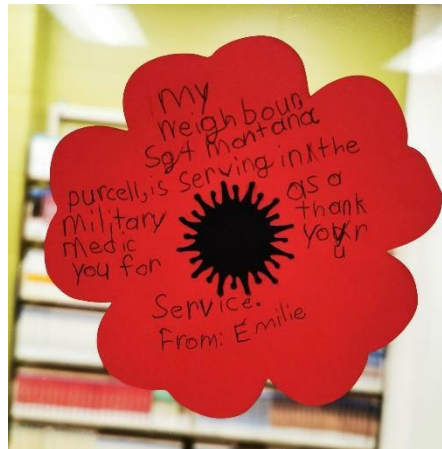 My
neighboun
Sgt Montana
purcell, is serving in the
military as a
medic thank
you for your
Service.
From: Emilie